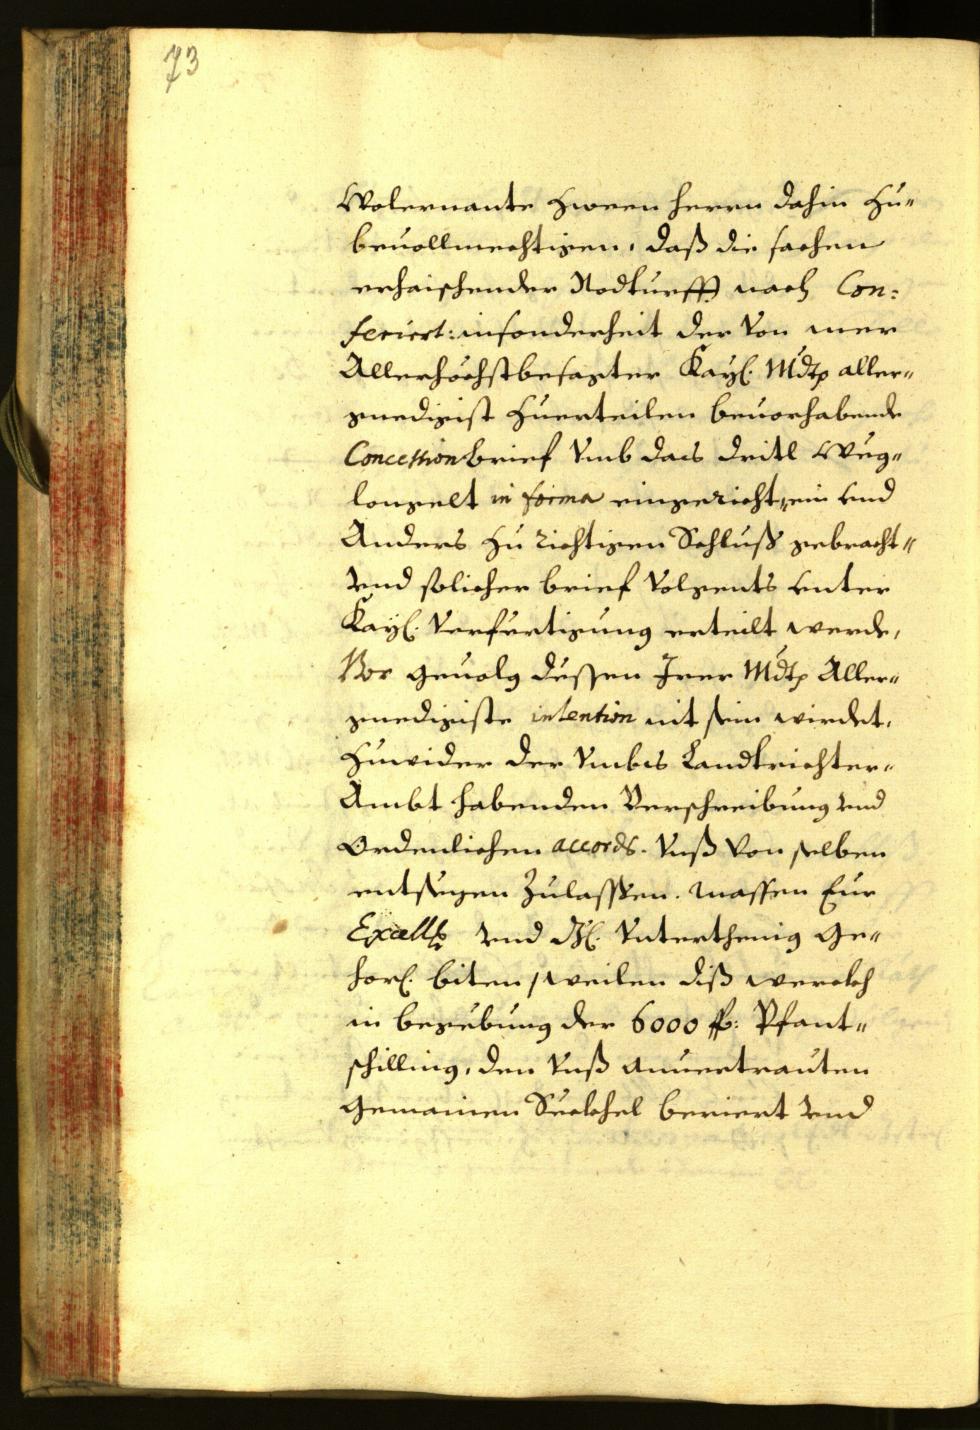 73
Wolernante Zween herrn dahin zu-
beuollmechtigen, daß die sachen
erhaischender Nodturfft nach Con-
feriert: insonderheit der von mer
Allerhöchstbesagter Kayl. Mdt aller-
gnedigist zuerteilen beuorhabende
Concession brief vmb das dritl Weg-
longelt in forma eingericht, ein und
Anders zu richtigen Schluß gebracht-
vnd solicher brief volgents unter
Kayl. Verfertigung erteilt werde,
Vor geuolg dessen Irer Mdt Aller-
gnedigiste intention nit sein wirdet,
zuwider der vmbs Landtrichter-
Ambt habenden Verschreibung vnd
Ordenlichen accords. Vnß von selben
entsezen zulassen. massen Eur
Excell vnd Gl. Vnterthenig Ge-
horl. biten, weilen diß werckh
in begebung der 6000 f: Pfant-
schilling, den vnß anuertrauten
gemainen Seckhel beriert vnd